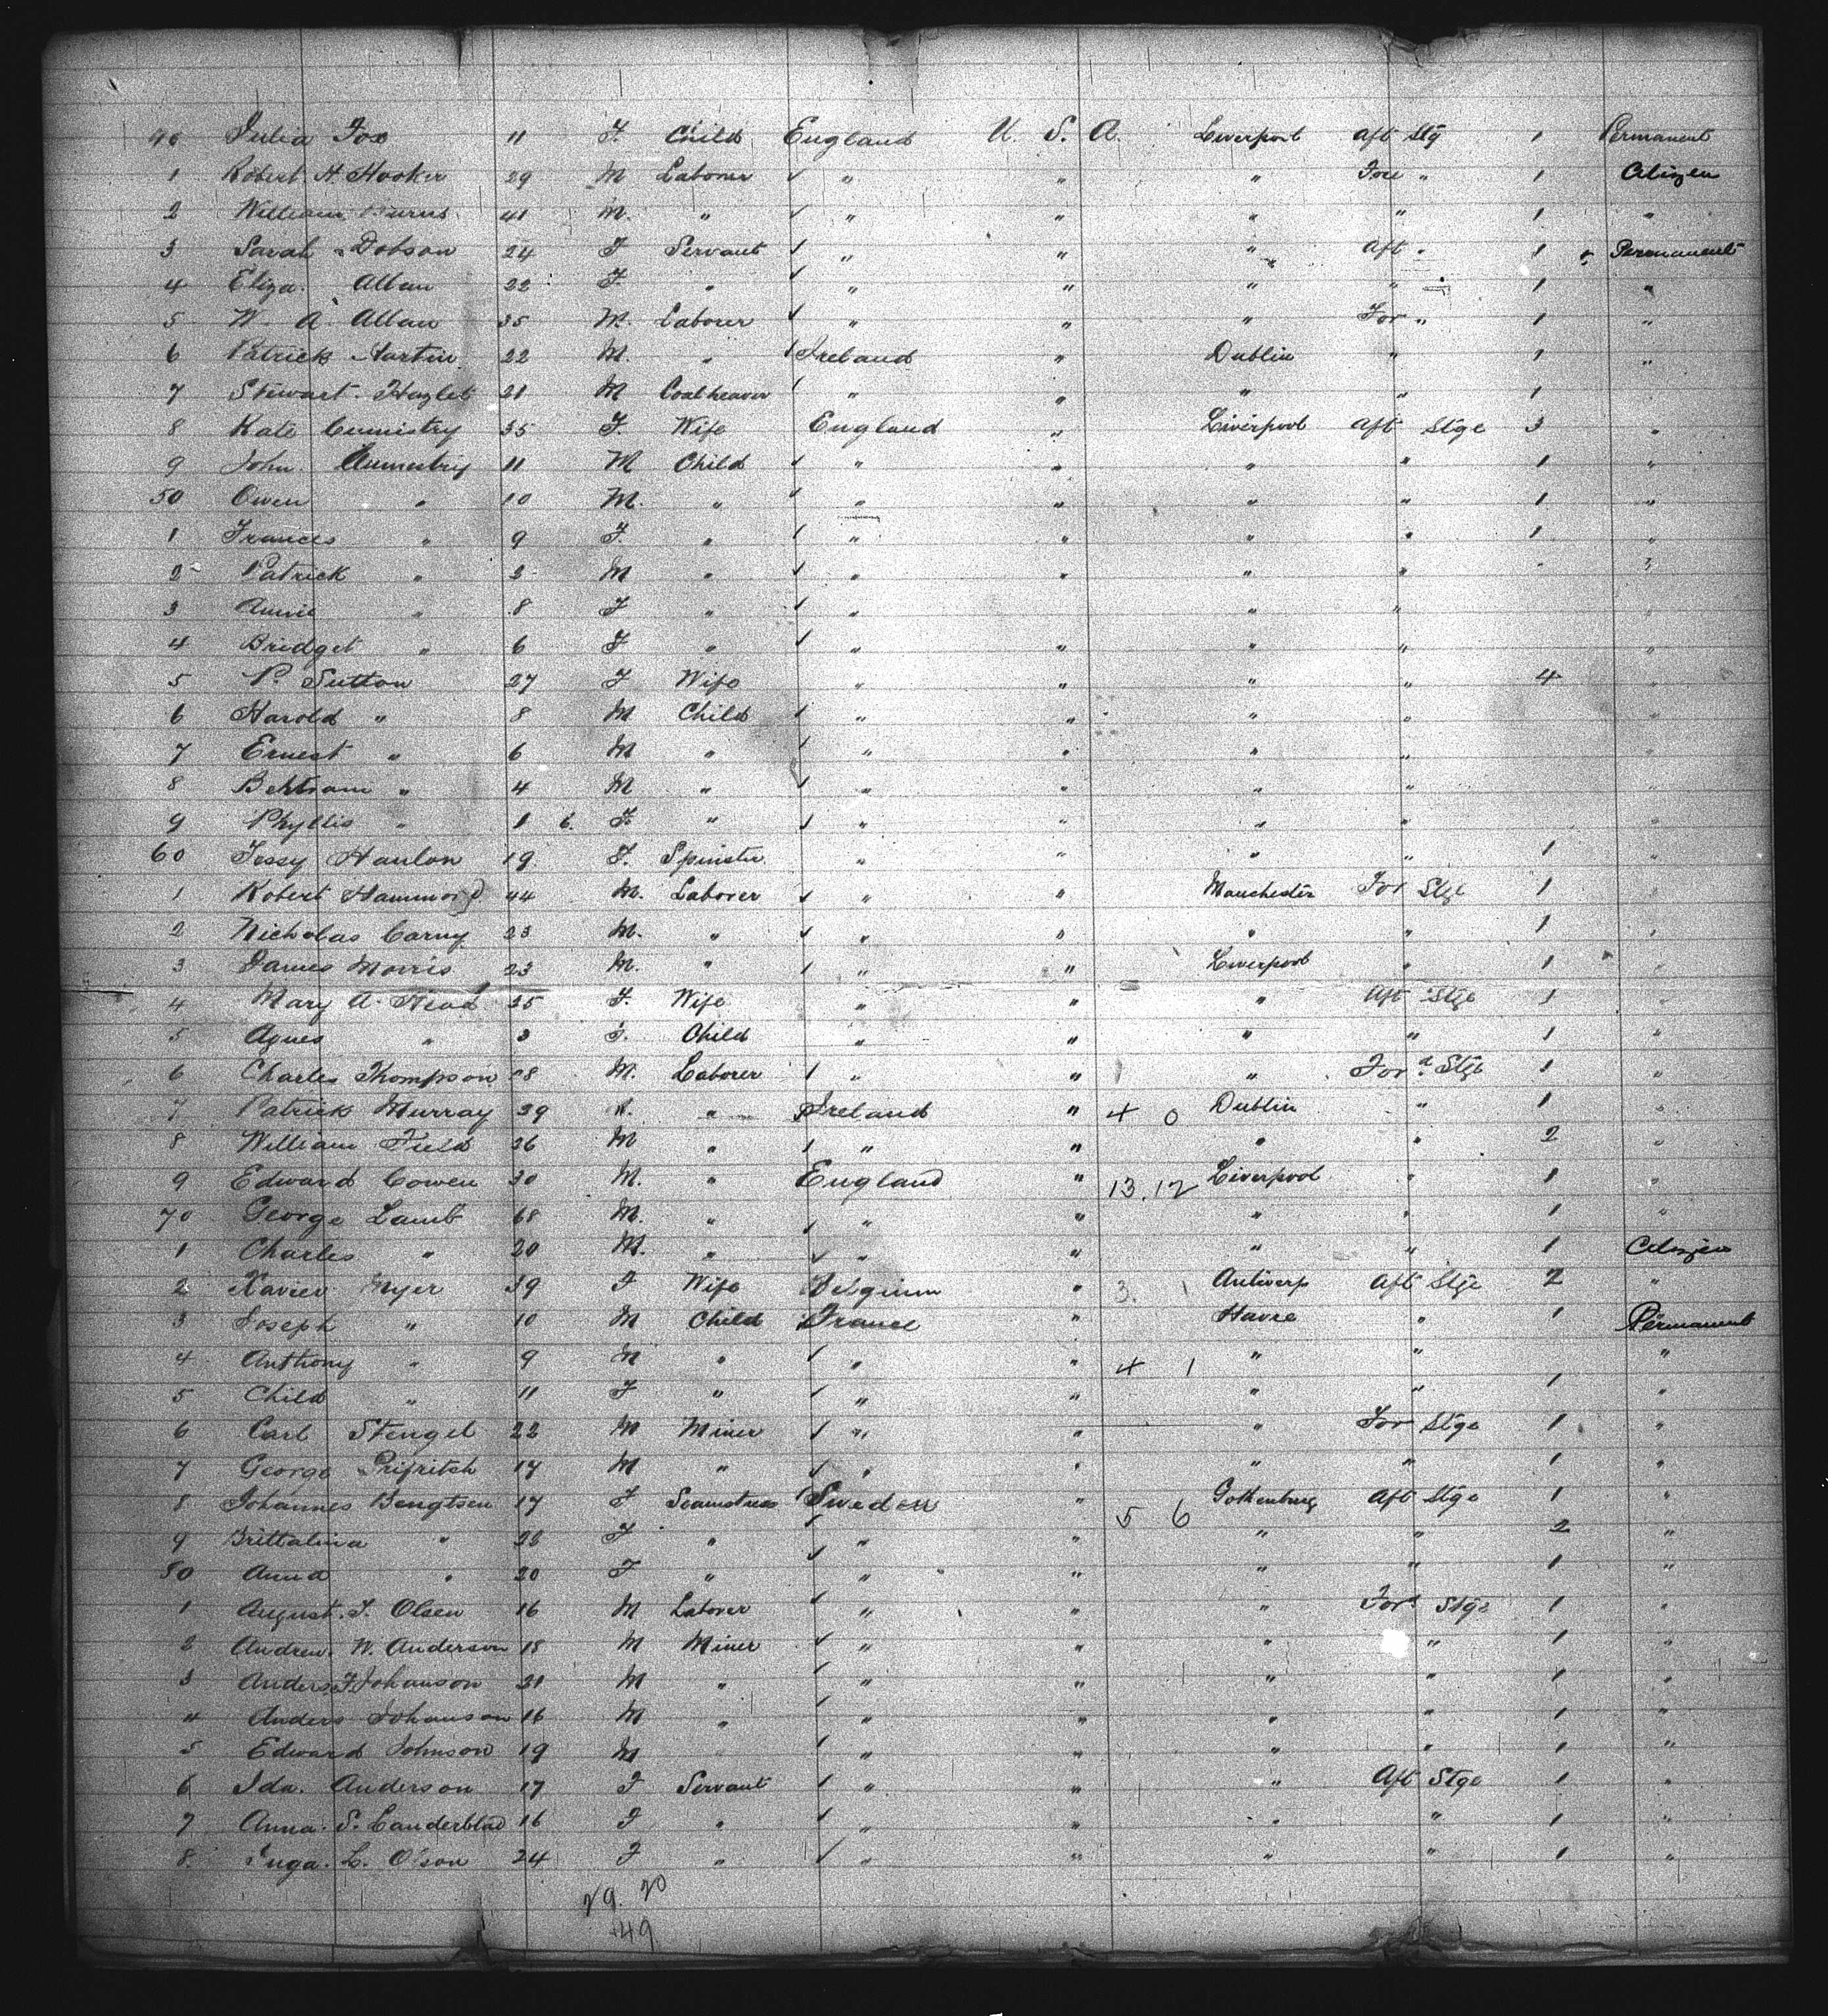 40 Julia Fox 11 F. Child England U. S. A. Liverpool Aft Stg 1 Permanent
1 Robert H. Hooker 29 M Laborer " " " Fore " 1 Citizen
2 William Burns 41 M. " " " " " 1 "
3 Sarah Dobson 24 F Servant " " " Aft " 1 Permanent
4 Eliza. Allan 22 F. " " " " " 1 "
5 W. A. Allan 35 M. Laborer " " " For " 1 "
6 Patrick Martin 22 M. " Ireland " Dublin " 1 "
7 Stewart. Hazlet 21 M Coalheaver " " " " 1
8 Kate Cumistry 35 F. Wife England " Liverpool Aft Stge 3 "
9 John. 11 M Child " " " " 1 "
50 Owen " 10 M. " " " " " 1 "
1 Frances " 9 F. " " " " " 1 "
2 Patrick " M " " " " " "
3 Annie " 8 F " " " "
4 Bridget " 6 F " " " " " "
5 P. Sutton 27 F Wife " " " " 4 "
6 Harold " 8 M Child " " " " "
7 Ernest " 6 M " " " " " "
8 Bertram " 4 M " " " " " "
9 Phyllis " 1 6. F. " " " " " "
60 Jessy Hanlon 19 F. Spinster " " " " 1 "
1 Robert Hammond 44 M. Laborer " " Manchester For Stge 1 "
2 Nicholas Carny 23 M. " " " " " 1 "
3 James Morris 23 M. " " " Liverpool " 1 "
4 Mary A. Head 35 F. Wife " " " Aft Stge 1 "
5 Agnes " 3 F. Child " " " " 1 "
6 Charles Thompson M. Laborer " " " Ford Stge 1 "
7 Patrick Murray 39 M. " Ireland " 4 0 Dublin " 1 "
8 William Field 36 M " " " " " 2 "
9 Edward Cowen 30 M. " England " 13.12 Liverpool " 1 "
70 George Lamb 68 M. " " " " " 1 "
1 Charles " 20 M. " " " " " 1 Citizen
2 Xavier Myer 39 F Wife Belgium " 3. 1 Antwerp Aft Stge 2 "
3 Joseph " 10 M Child France " Havre " 1 Permanent
4 Anthony " 9 M " " " 4 1 " " "
5 Child " 11 F " " " " " 1 "
6 Carl Stengel 22 M Miner " " " For Stge 1 "
7 George 17 M " " " " " 1 "
8 Johannes Bengtsen 17 F Seamstress Sweden " 5 6 Gothenburg Aft Stge 1 "
9 Brittalina " F " " " " " 2 "
80 Anna " 20 F " " " " " 1 "
1 August. F. Olsen 16 M Laborer " " " Ford Stge 1 "
2 Andrew. W. Anderson 18 M Miner " " " " 1 "
3 Anders. F. Johanson 21 M " " " " " 1 "
4 Anders Johanson 16 M " " " " " 1 "
5 Edward Johnson 19 M " " " " 1 "
6 Ida. Anderson 17 F Servant " " " Aft Stge 1 "
7 Anna. S. Landerblad 16 F " " " " " 1 "
8. Inga. L. Olson 24 F " " " " " 1 "
29. 20
49